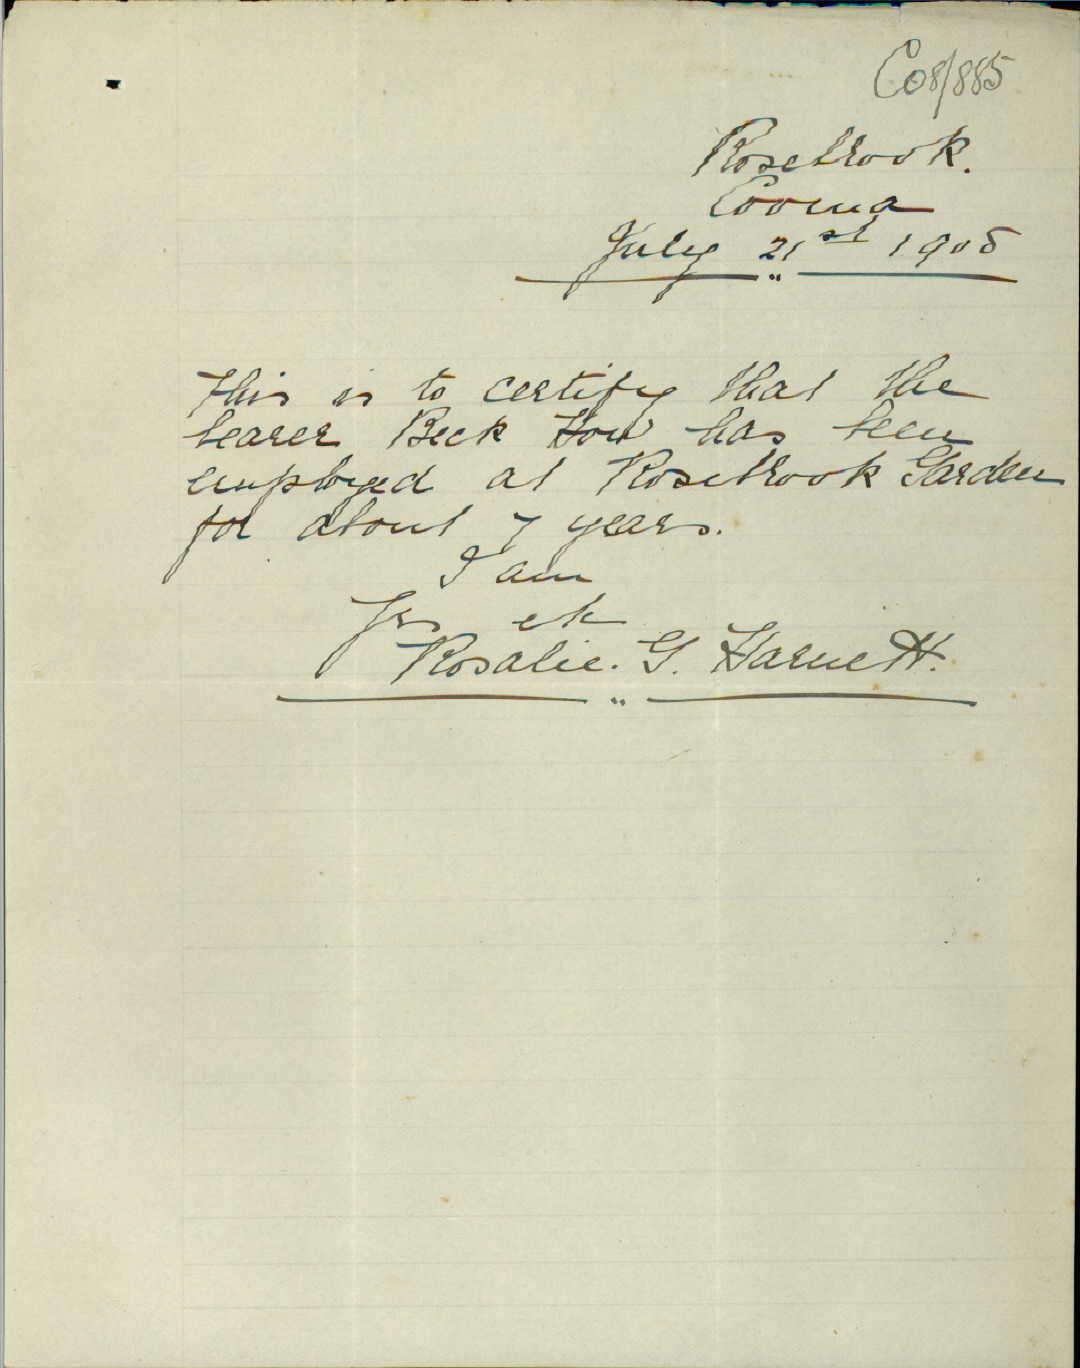 C08/885
Rosebrook.
Cooma
July 21st 1908
This is to certify that the
bearer Beck How has been
employed at Rosebrook Garden
for about 7 years.
I am
Yrs etc
Rosalie. G. Harnett.